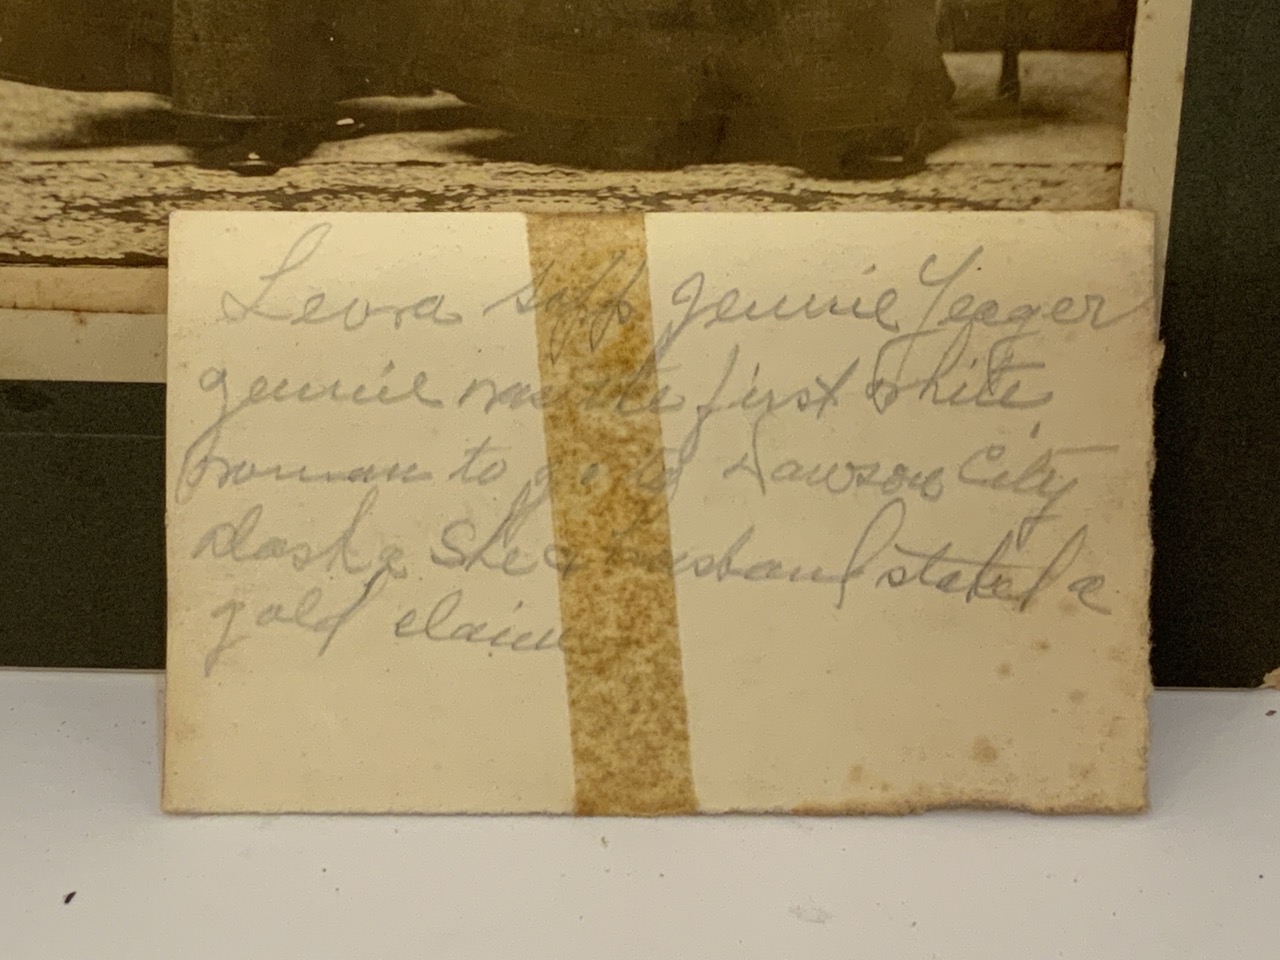 Leova Jennie Yeager
Jennie was the first White
woman to go to Dawson City
Alaska She & husband staked a
gold claim